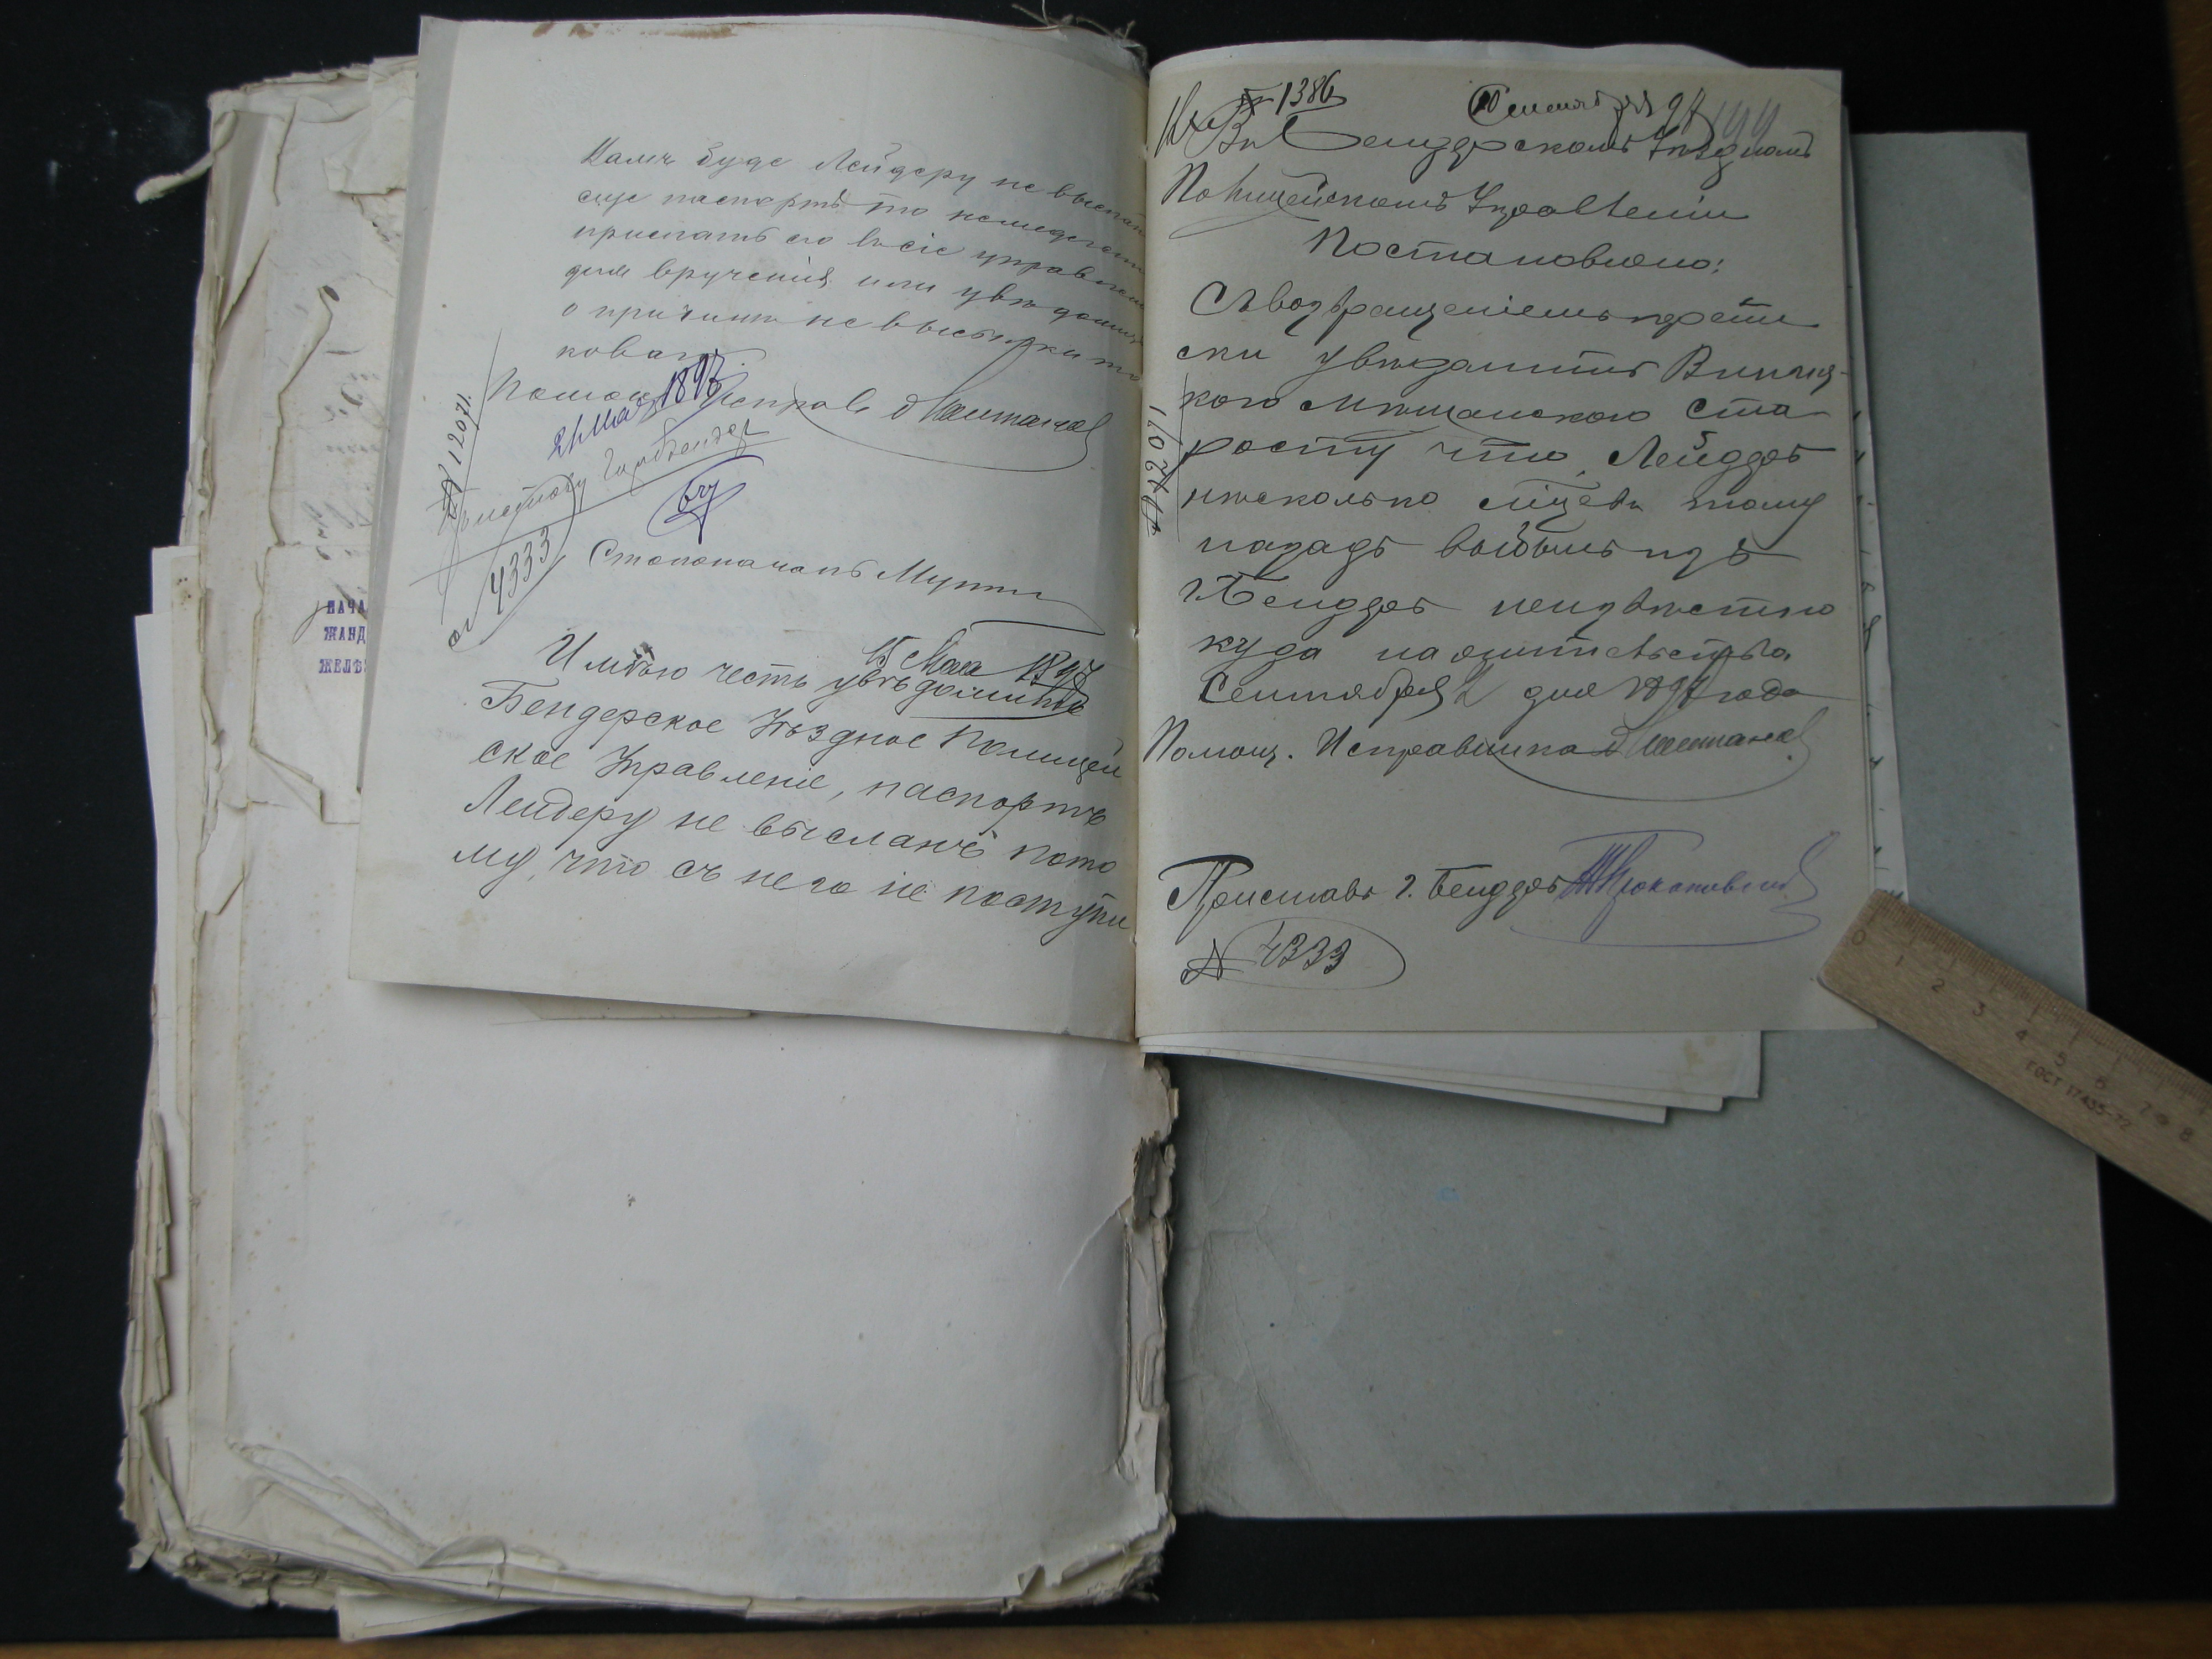 буде Лейдеру не выслан
еще паспортъ то
прислать его въ сіе управлені
для врученія или увѣдомит
о причинѣ не высылки та
коваго
Помощ Исправ
21 Мая 1897
№ 12071.
Приставу Гор Бендер
4333
Столоначал
15 Мая 1897
Имѣю честь увѣдомить
Бендерское Уѣздное Полицей
ское Управленіе, паспортъ
Лейдеру не высланъ пото
му, что съ него не поступи
НАЧА
ЖАНД
ЖЕЛѢ
Вх № 1386
10 Сентября 97
199
Въ Бендерскомъ Уѣздномъ
Полицейскомъ Управленіи
Постановлено:
Съ возвращеніемъ перепи
ски увѣдомить Винниц-
кого мѣщанского ста
росту что Лейдеръ
нѣсколько мѣсяцевъ тому
назадъ выбылъ изъ
г. Бендеръ неизвѣстно
куда на жительство.
Сентября 2 дня 1897 года
Помощ. Исправника
№ 12071
Приставъ г. Бендеръ
№ 4333
0 1 2 3 4 5 6 7 8
ГОСТ 17435-72